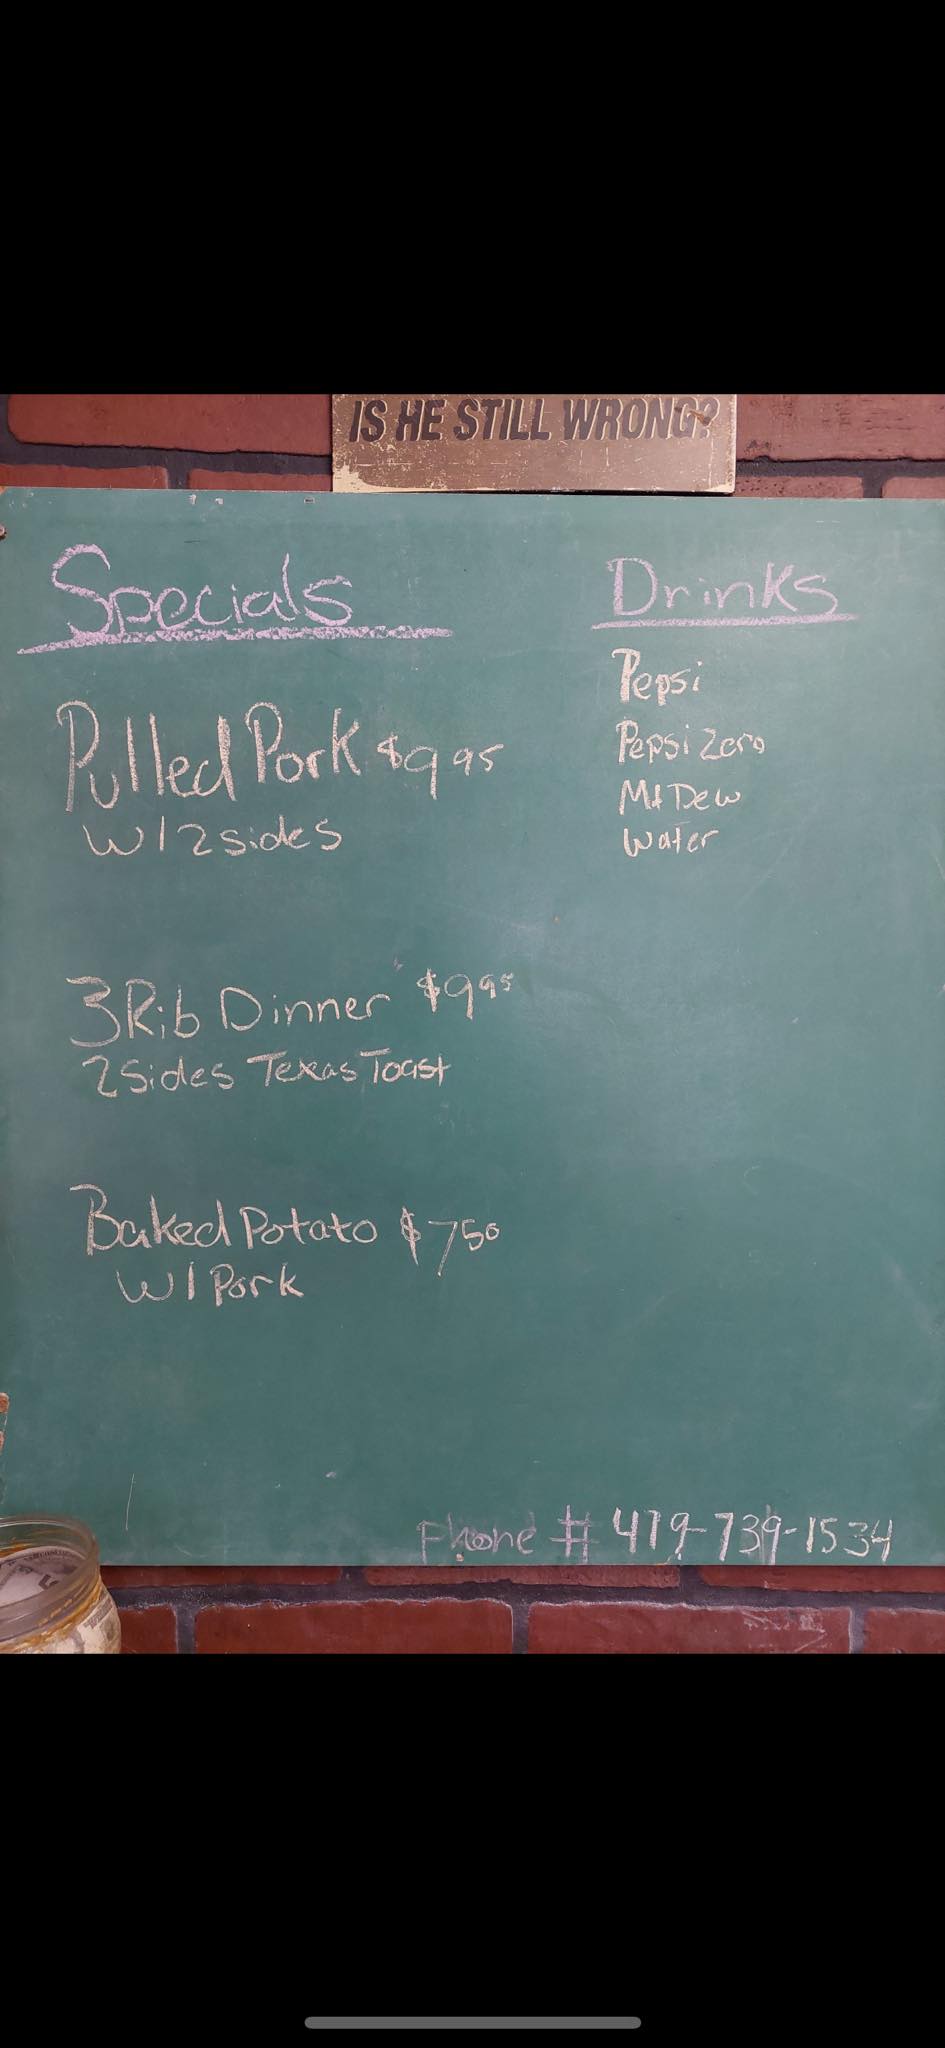 IS HE STILL WRONG?
Specials
Pulled Pork $9.95
W/ 2 sides
3 Rib Dinner $9.95
2 Sides Texas Toast
Baked Potato $7.50
W/ Pork
Drinks
Pepsi
Pepsi Zero
Mt Dew
Water
Phone # 419-739-1534